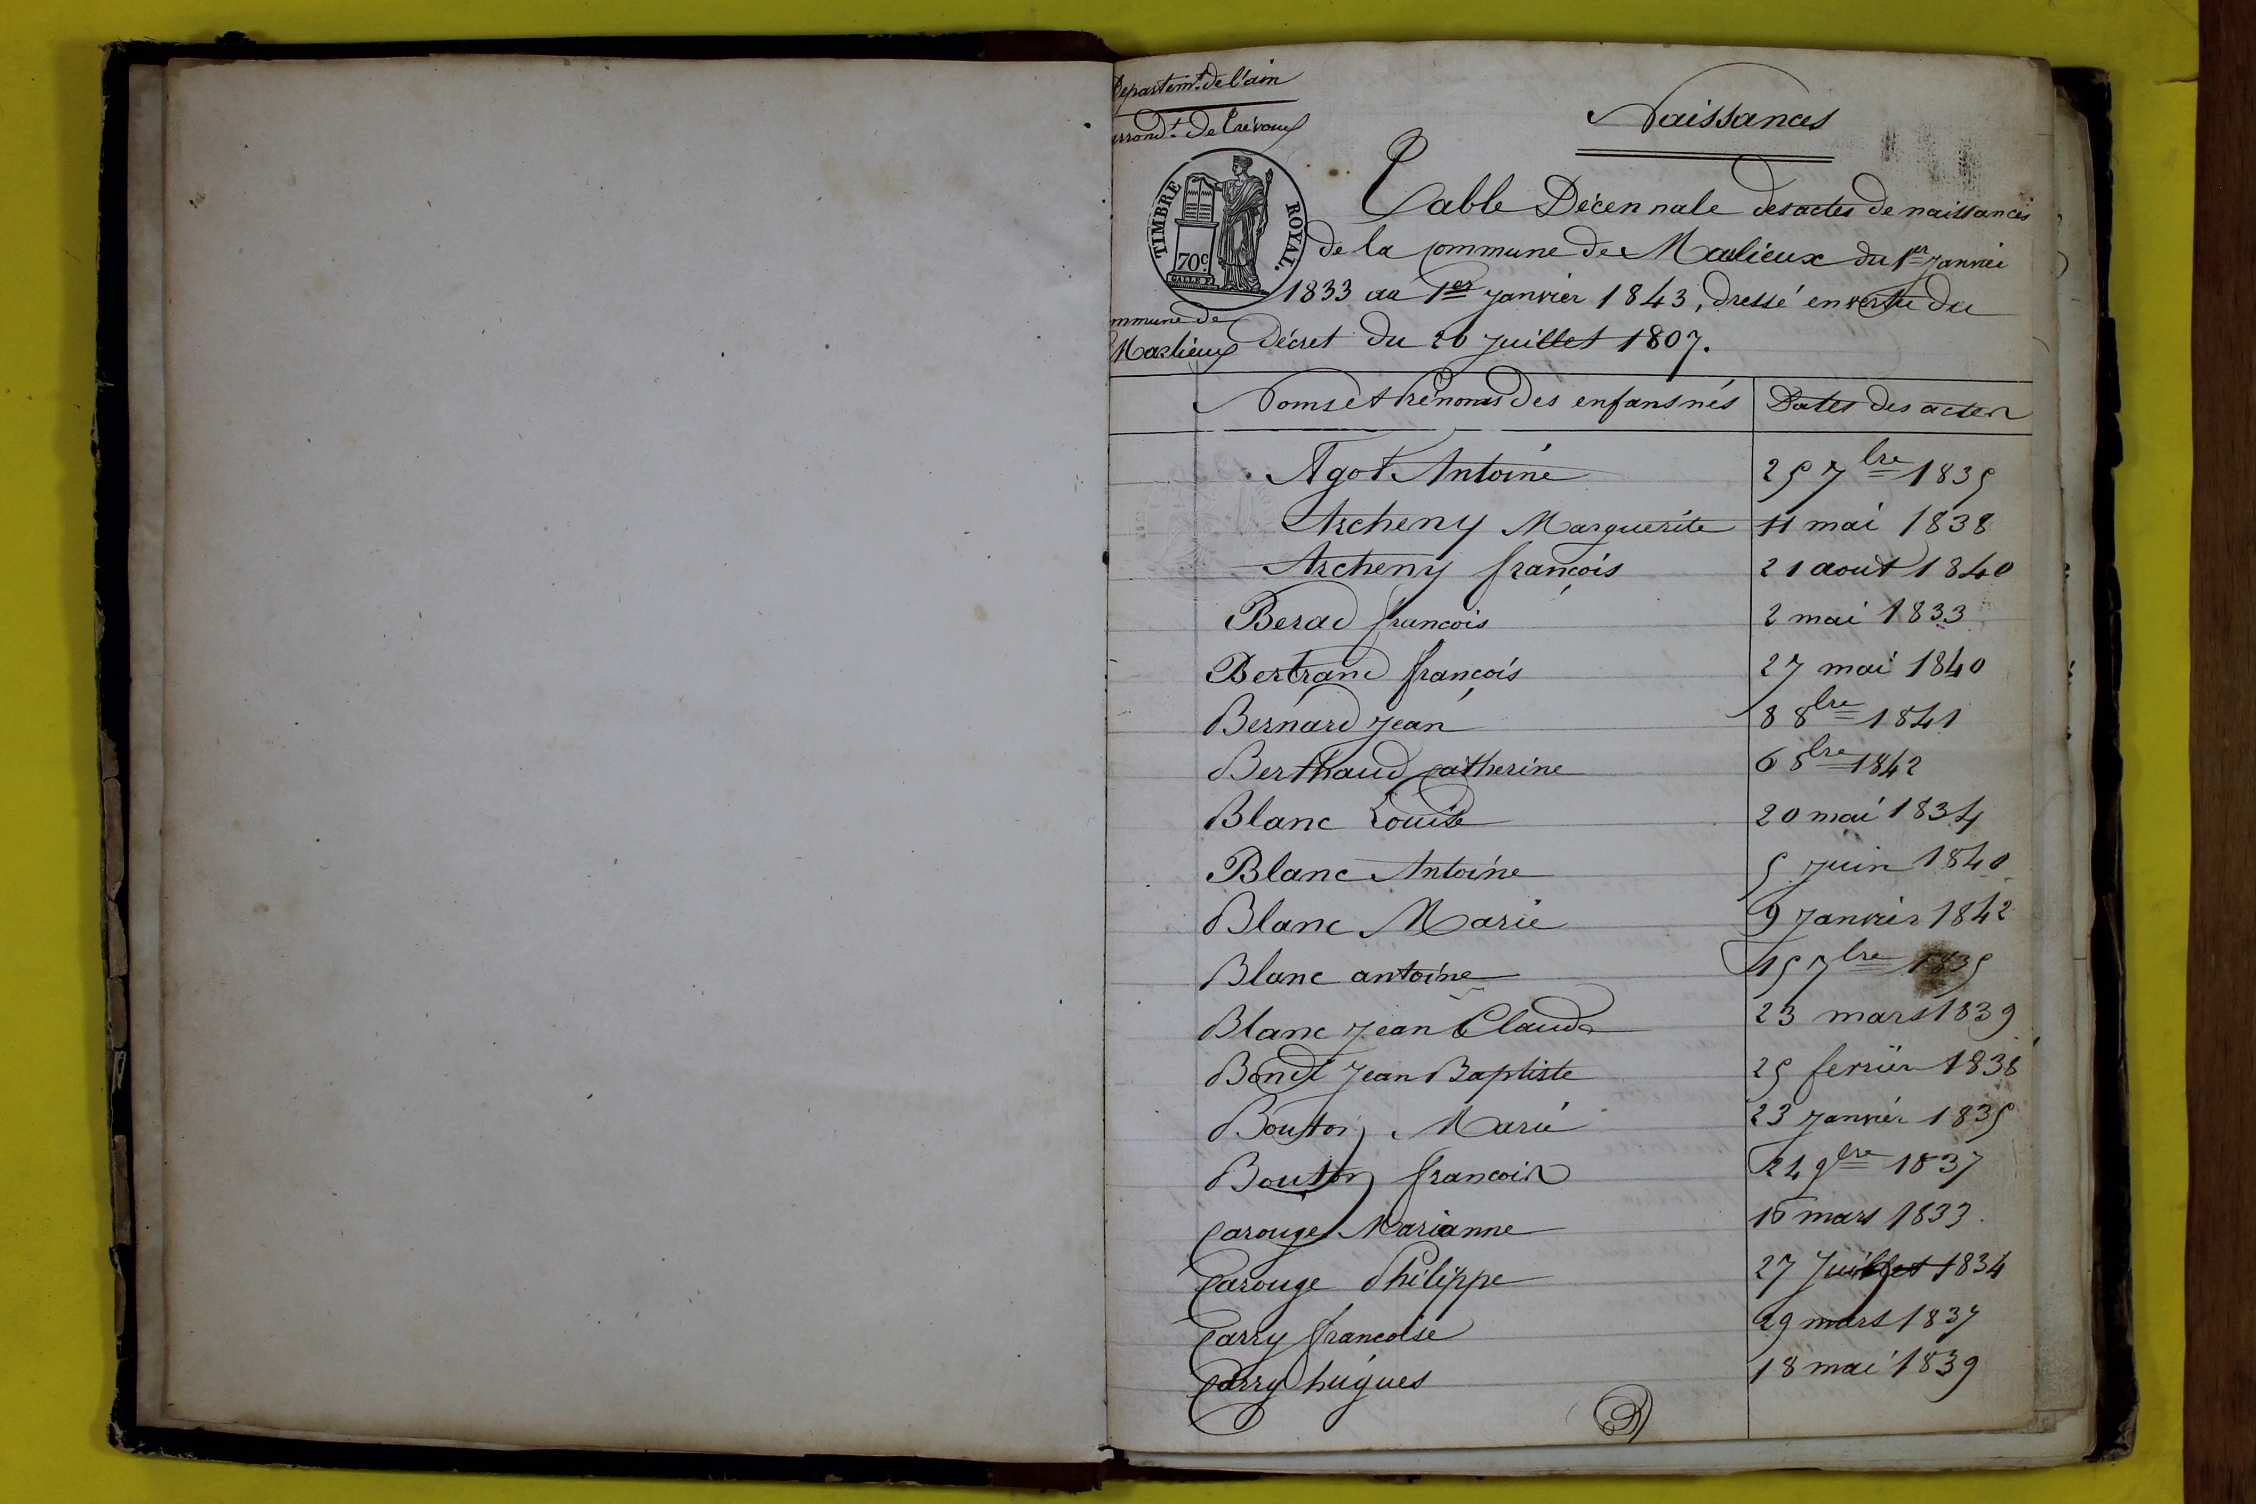 Departemt. de l'ain
arrondt. de Trévoux
Naissances
TIMBRE ROYAL.
70c.
Table Décennale des actes de naissances
de la commune de Marlieux du 1er janvier
1833 au 1er janvier 1843, dressé en vertu du
commune de
Marlieux
Décret du 20 juillet 1807.
Noms et Prénoms des enfans nés Dates des actes
Agot Antoine 25 7bre 1835
Archeny Marguerite 11 mai 1838
Archeny françois 21 aout 1840
Berad francois 2 mai 1833
Bertrand françois 27 mai 1840
Bernard jean 8 8bre 1841
Berthaud catherine 6 8bre 1842
Blanc Louise 20 mai 1834
Blanc Antoine 5 juin 1840
Blanc Marie 9 janvier 1842
Blanc antoine 15 7bre 1835
Blanc jean Claude 23 mars 1839
Bondt jean Baptiste 25 fevrier 1838
Bouton Marie 23 janvier 1835
Bouton francois 24 9bre 1837
Carouge Marianne 16 mars 1833
Carouge Philippe 27 Juillet 1834
Carry francoise 29 mars 1837
Carry hugues 18 mai 1839